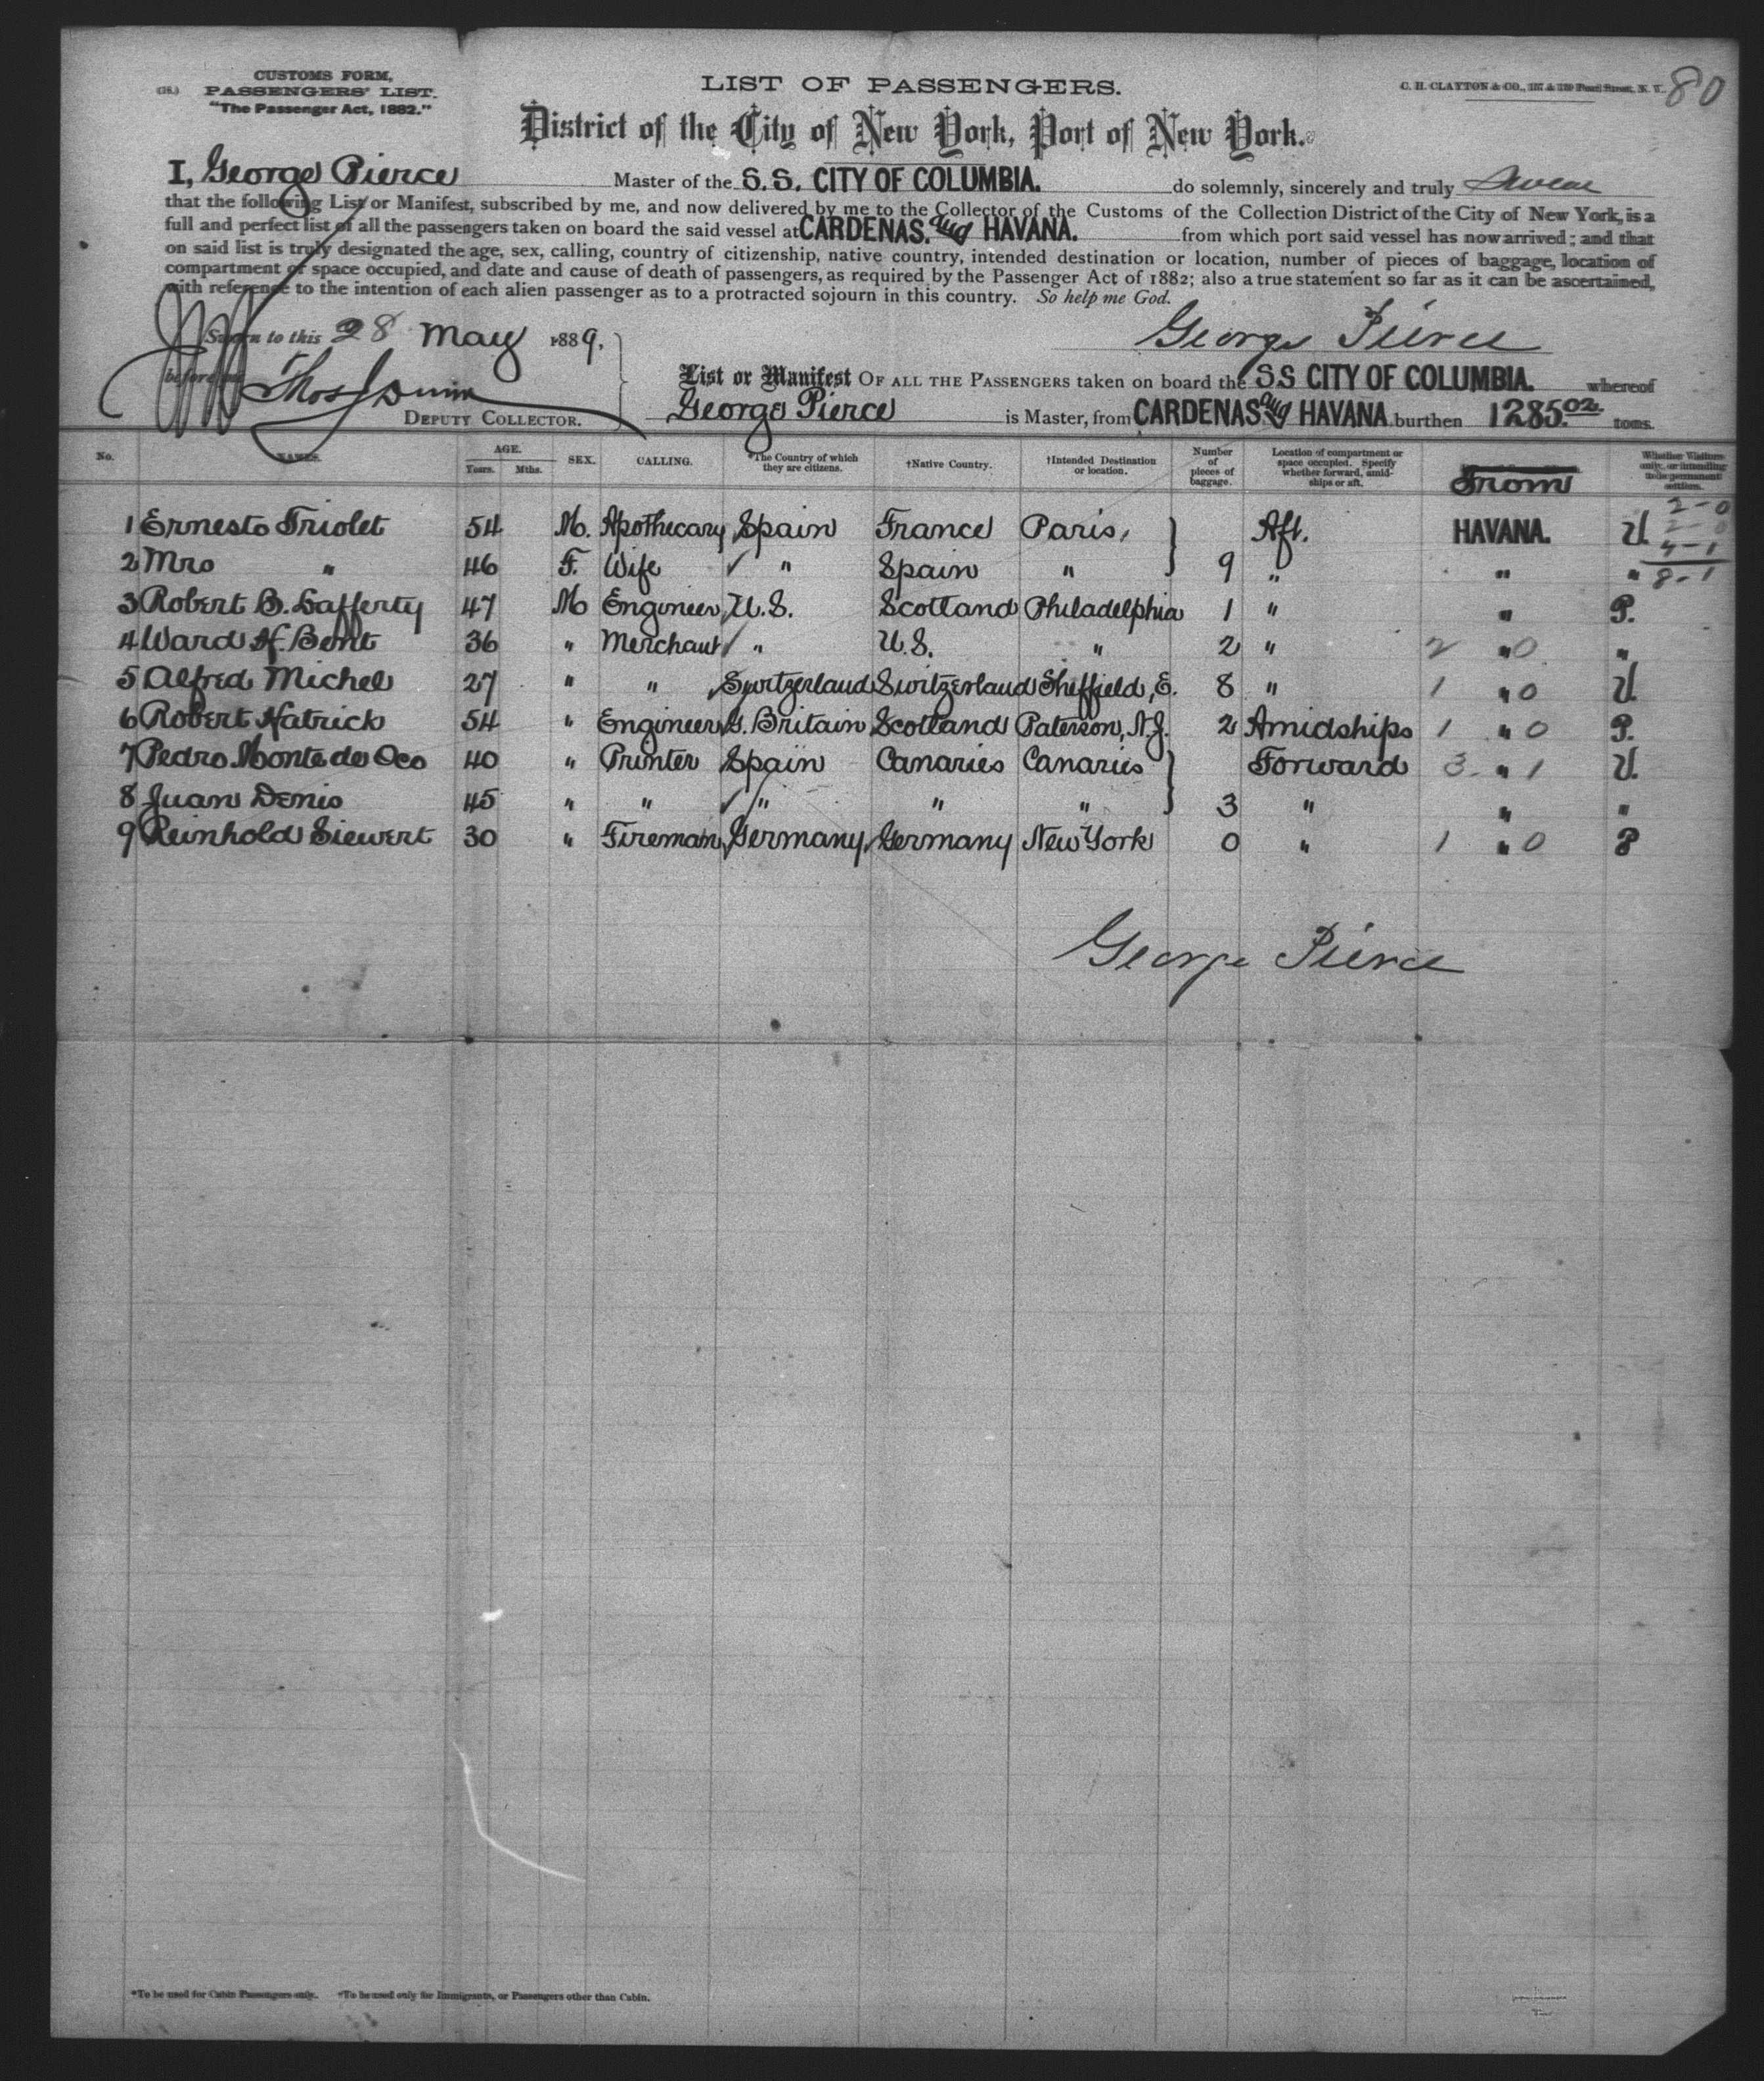 80
CUSTOMS FORM,
PASSENGERS' LIST.
"The Passenger Act, 1882."
LIST OF PASSENGERS.
C. H. CLAYTON & CO., 157 & 159 Pearl Street, N. Y.
District of the City of New York, Port of New York.
I, George Pierce Master of the S.S. CITY OF COLUMBIA. do solemnly, sincerely and truly swear
that the following List or Manifest, subscribed by me, and now delivered by me to the Collector of the Customs of the Collection District of the City of New York, is a
full and perfect list of all the passengers taken on board the said vessel at CARDENAS. and HAVANA. from which port said vessel has now arrived; and that
on said list is truly designated the age, sex, calling, country of citizenship, native country, intended destination or location, number of pieces of baggage, location of
compartment or space occupied, and date and cause of death of passengers, as required by the Passenger Act of 1882; also a true statement so far as it can be ascertained,
with reference to the intention of each alien passenger as to a protracted sojourn in this country. So help me God.
Sworn to this 28 May 1889,
George Pierce
before me Thos J Dunn
DEPUTY COLLECTOR.
List or Manifest OF ALL THE PASSENGERS taken on board the S.S CITY OF COLUMBIA. whereof
George Pierce is Master, from CARDENAS and HAVANA. burthen 1285.02 tons.
No. NAMES. AGE. Years. Mths. SEX. CALLING. *The Country of which they are citizens. †Native Country. †Intended Destination or location. Number of pieces of baggage. Location of compartment or space occupied. Specify whether forward, amidships or aft. From
2-0
2-0
4-1
8-1
1 Ernesto Triolet 54 M. Apothecary Spain France Paris, Aft. HAVANA. V.
2 Mrs " 46 F. Wife ✓ " Spain " 9 " " "
3 Robert B. Lafferty 47 M Engineer, U.S. Scotland Philadelphia 1 " " P.
4 Ward H. Bent 36 " Merchant ✓ " U.S. " 2 " 2 " 0 "
5 Alfred Michel 27 " " Switzerland Switzerland Sheffield, E. 8 " 1 " 0 V.
6 Robert Hatrick 54 " Engineer G. Britain Scotland Paterson, N.J. 2 Amidships 1 " 0 P.
7 Pedro Monte de Oco 40 " Printer Spain Canaries Canaries Forward 3 " 1 V.
8 Juan Denis 45 " " ✓ " " " 3 " " "
9 Reinhold Siewert 30 " Fireman Germany, Germany New York 0 " 1 " 0 P
George Pierce
*To be used for Cabin Passengers only. †To be used only for Immigrants, or Passengers other than Cabin.